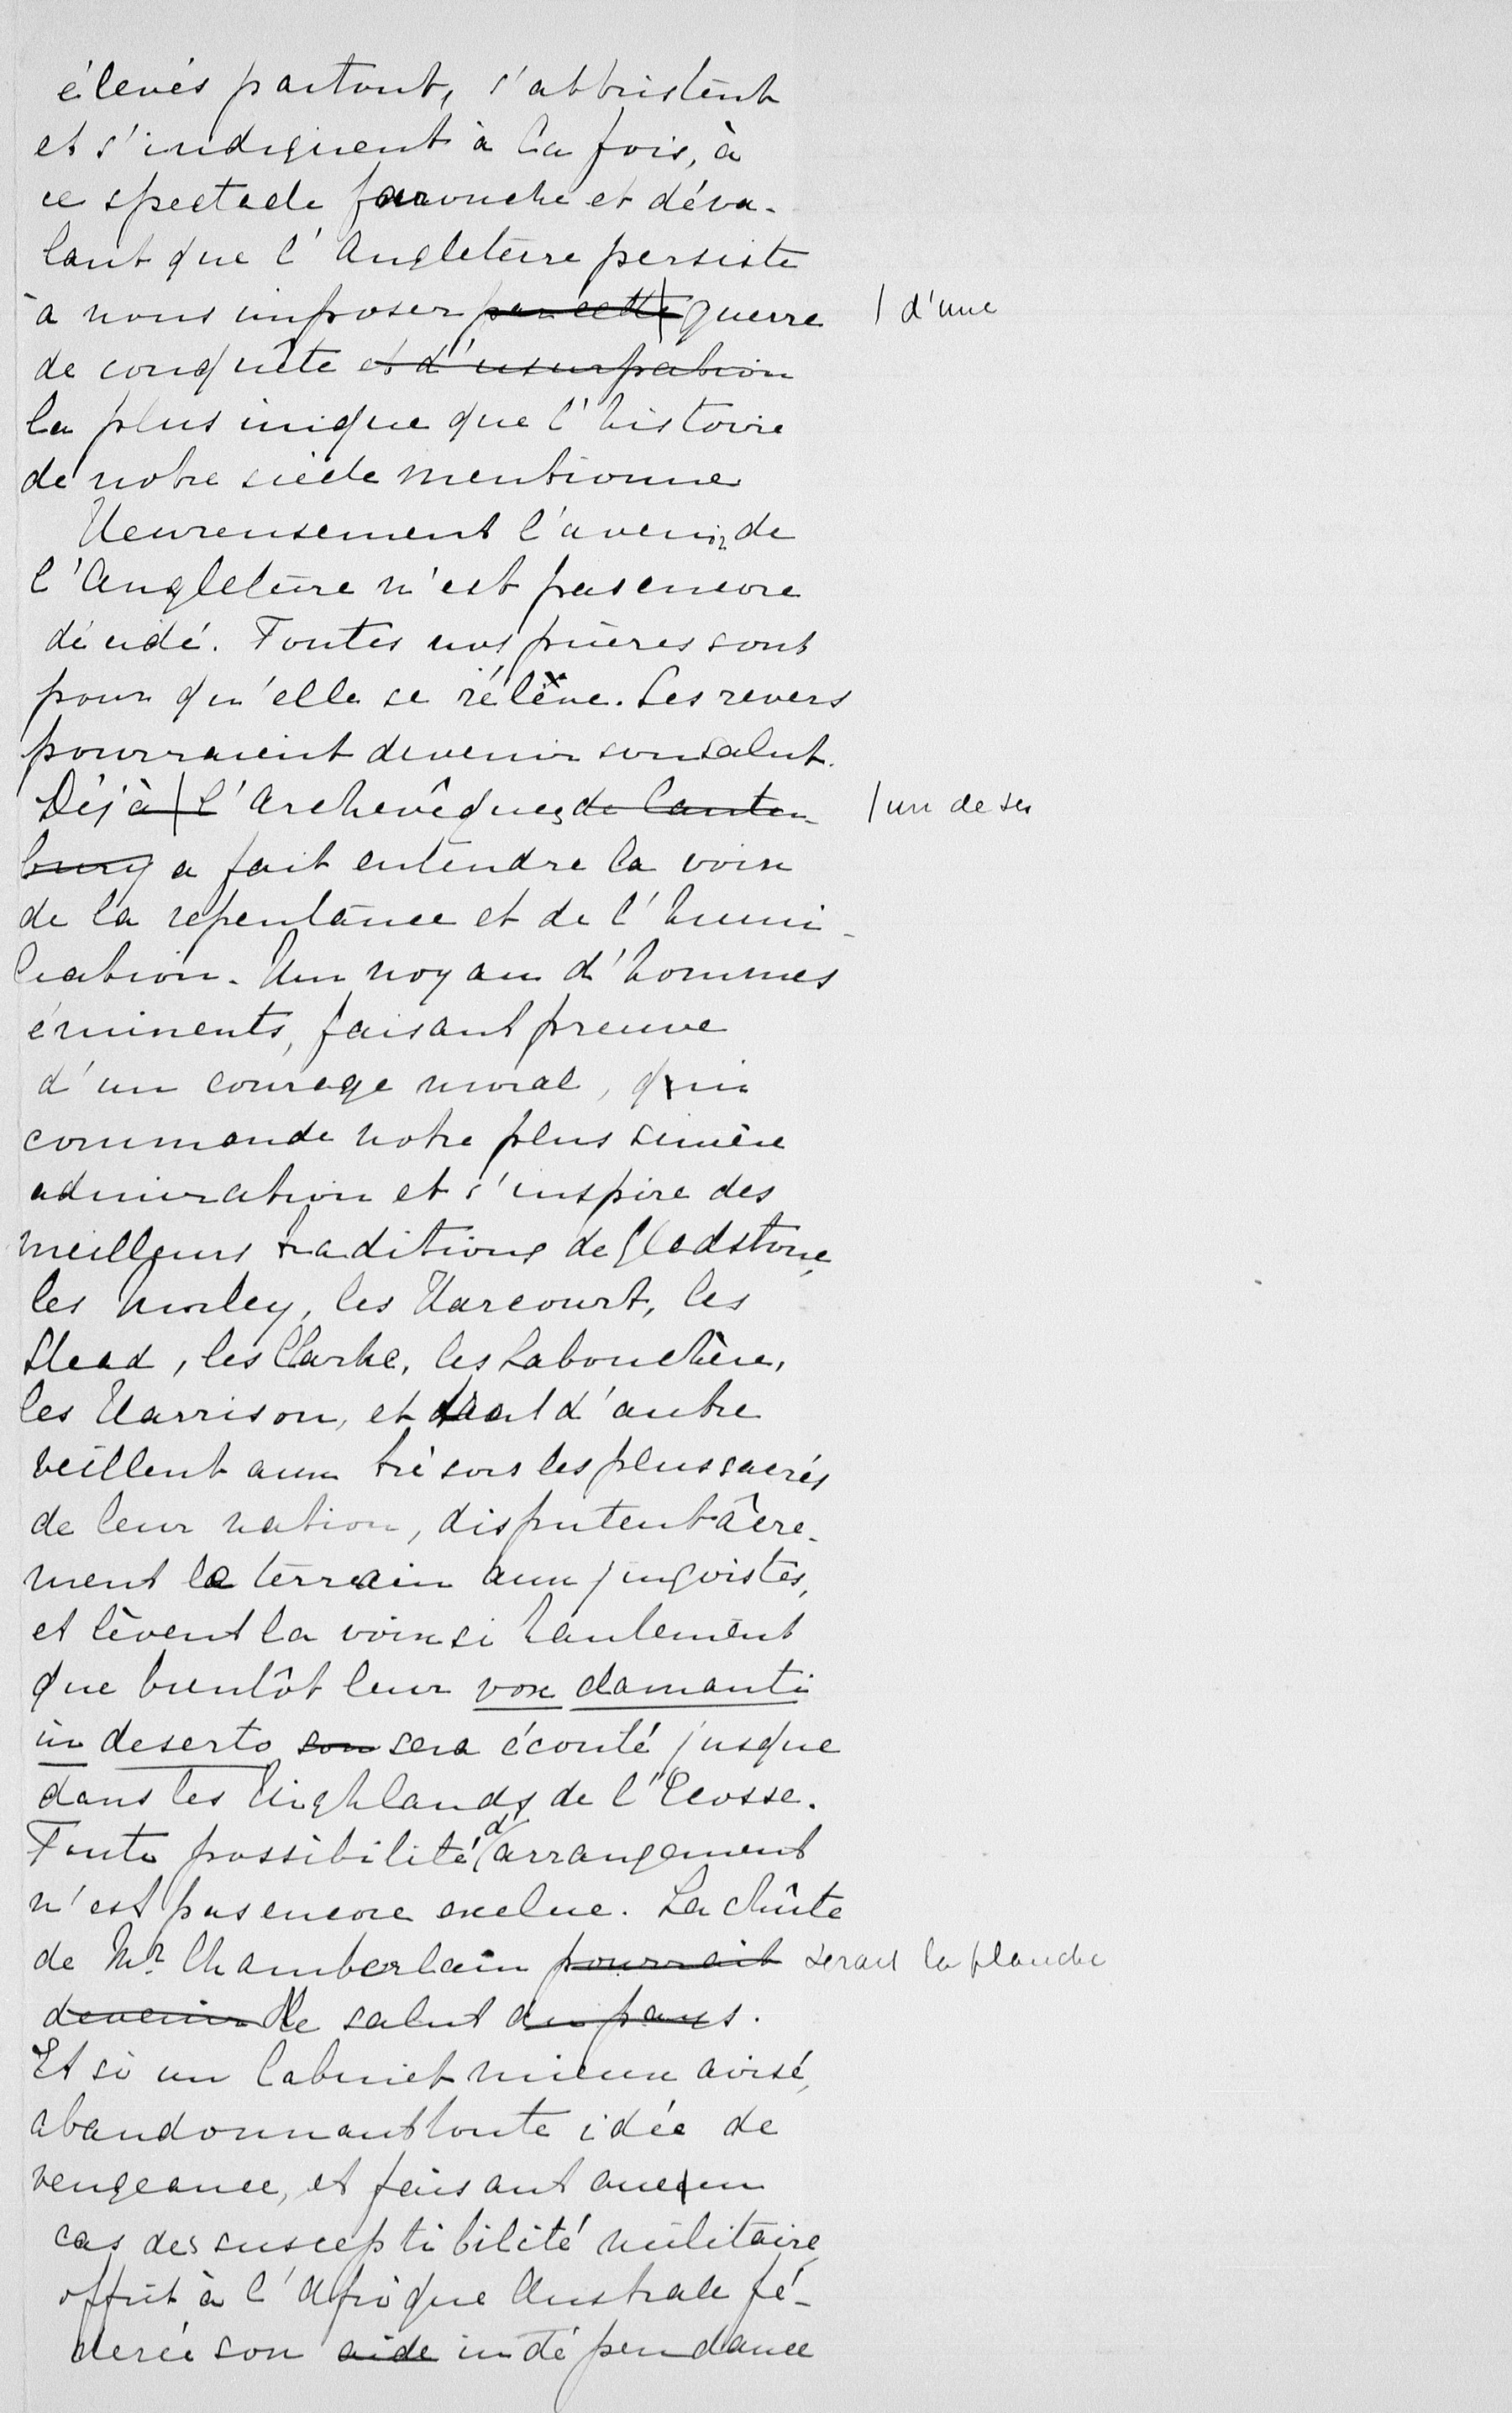 élevés partout, s'attristent
et s'indignent à la fois, à
ce spectacle farouche et déva-
lant que l'Angleterre persiste
à nous imposer par cette guerre | d'une
de conquête et d'usurpation
la plus inique que l'histoire
de notre siècle mentionne
Heureusement l'avenir de
l'Angleterre n'est pas encore
décidé. Toutes nos prières sont
pour qu'elle se rélève. Les revers
pourraient devenir son salut.
Déjà | l'Archevêques de Canter- | un de ses
bury a fait entendre la voix
de la repentance et de l'humi-
liation. Un noyau d'hommes
éminents, faisant preuve
d'un courage moral, qui
commande notre plus sincère
admiration et s'inspire des
meilleurs traditions de Gladstone,
les Morley, les Harcourt, les
Stead, les Clarke, les Labouchère,
les Harrison, et tant d'autre
veillent aux trésors les plus sacrés
de leur nation, disputent âcre-
ment le terrain aux jingoistes,
et lèvent la voix si hautement
que bientôt leur vox clamanti
in deserto son sera écouté jusque
dans les Highlands de l'Ecosse.
Toute possibilité d'arrangement
n'est pas encore exclue. La chûte
de Mr. Chamberlain pourrait serait la planche
devenir de salut du pays.
Et si un Cabinet mieux avisé,
abandonnant toute idée de
vengeance, et faisant aucun
cas de susceptibilité militaire,
offrit à l'Afrique Australe fé-
derée son aide indépendance